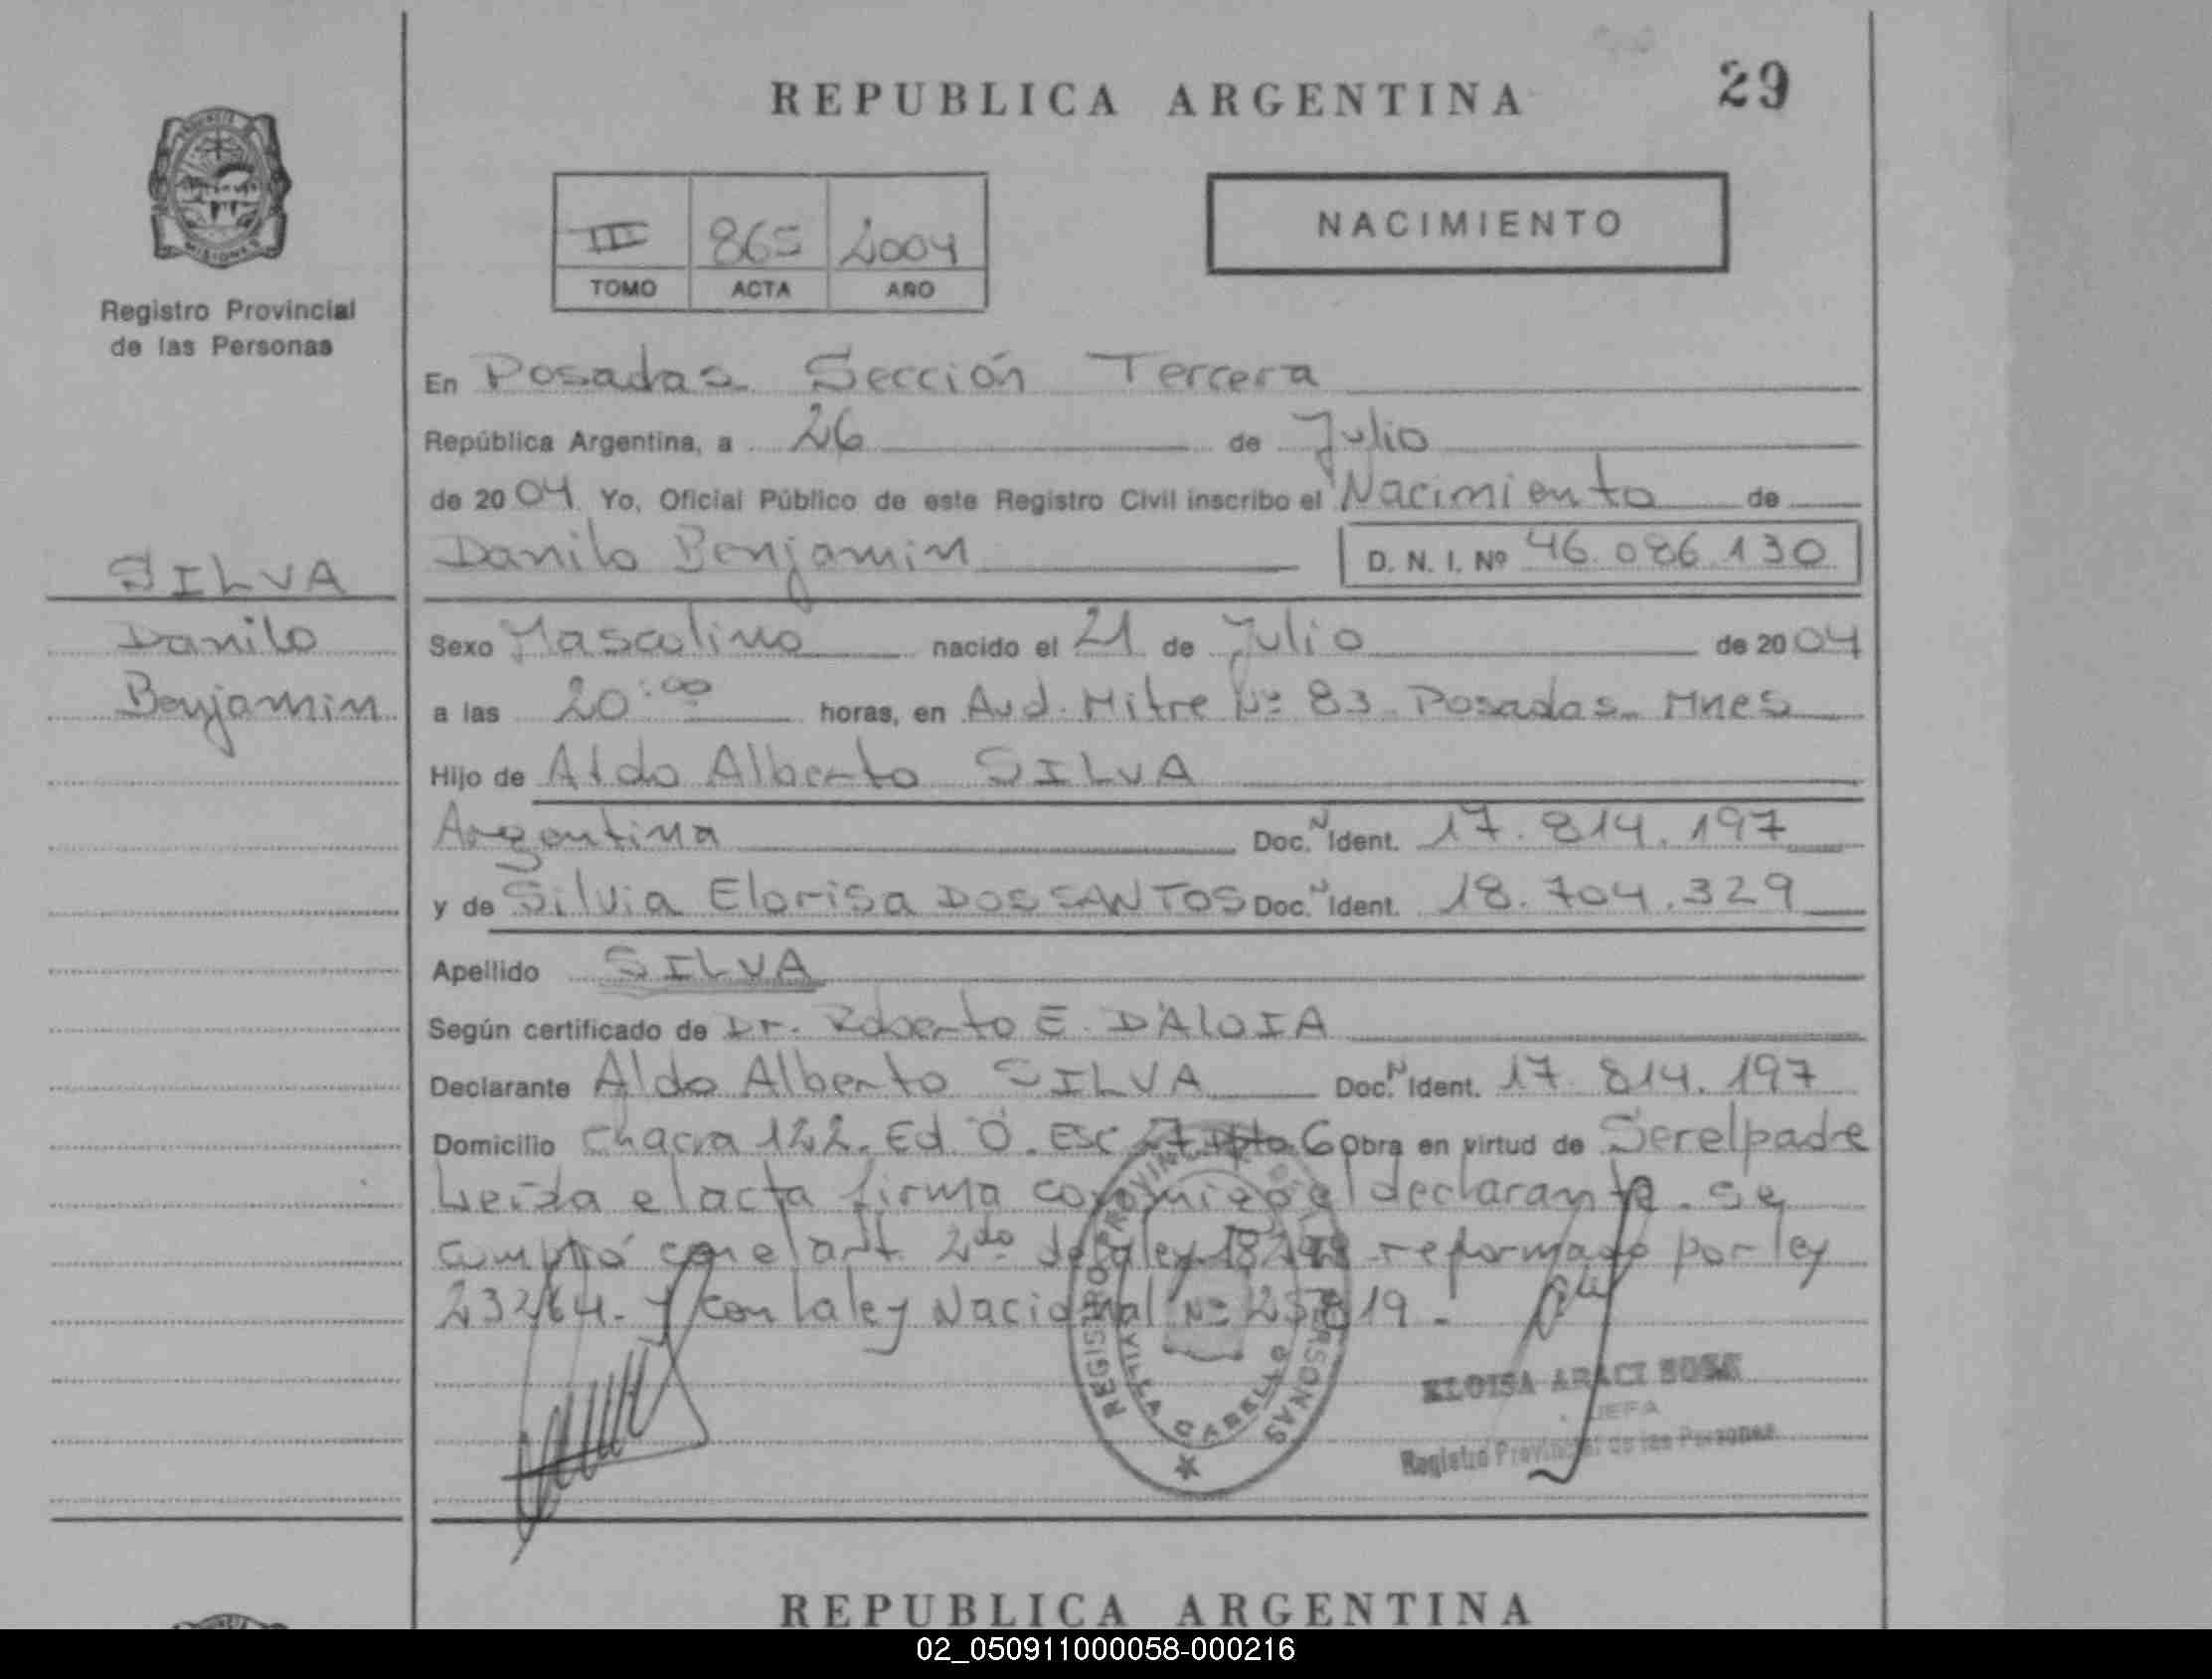 REPUBLICA ARGENTINA
29
MISIONES
Registro Provincial
de las Personas
III 865 2004
TOMO ACTA AÑO
NACIMIENTO
En Posadas Sección Tercera
República Argentina, a 26 de Julio
de 2004 Yo, Oficial Público de este Registro Civil inscribo el Nacimiento de
SILVA
Danilo
Benjamin
Danilo Benjamin D. N. I. Nº 46.086.130
Sexo Masculino nacido el 21 de Julio de 2004
a las 20:00 horas, en Avd. Mitre Nº 83 Posadas Mnes
Hijo de Aldo Alberto SILVA
Argentina Doc. N Ident. 17.814.197
y de Silvia Elorisa DOS SANTOS Doc. N Ident. 18.704.329
Apellido SILVA
Según certificado de Dr. Roberto E. D'ALOIA
Declarante Aldo Alberto SILVA Doc. N Ident. 17.814.197
Domicilio Chacra 122. Ed. O. Esc Dpto 6 Obra en virtud de Ser el padre
Leida el acta firma conmigo el declarante. Se
cumplió con el art. 2do de la ley 18248 reformado por ley
23264. y con la ley Nacional Nº 25819.
REGISTRO PROVINCIAL DE LAS PERSONAS
VILLA CABELLO
ELOISA ARACI SOSA
JEFA
Registro Provincial de las Personas
REPUBLICA ARGENTINA
02_050911000058-000216